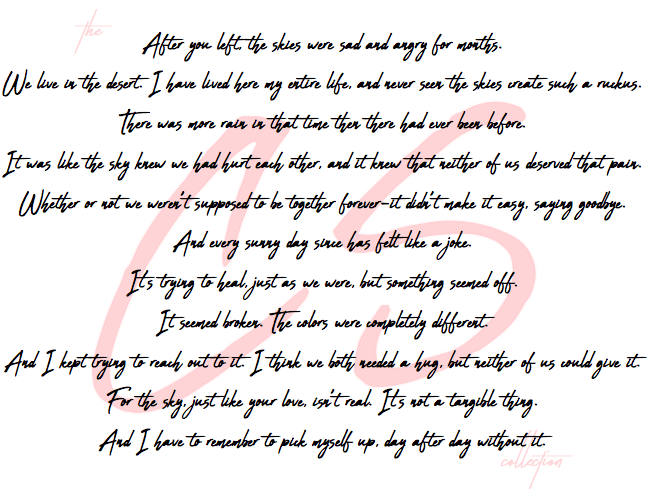 the
After you left, the skies were sad and angry for months.
We live in the desert. I have lived here my entire life, and never seen the skies create such a ruckus.
There was more rain in that time then there had ever been before.
It was like the sky knew we had hurt each other, and it knew that neither of us deserved that pain.
Whether or not we weren't supposed to be together forever-it didn't make it easy, saying goodbye.
And every sunny day since has felt like a joke.
It's trying to heal, just as we were, but something seemed off.
It seemed broken. The colors were completely different.
And I kept trying to reach out to it. I think we both needed a hug, but neither of us could give it.
For the sky, just like your love, isn't real. It's not a tangible thing.
And I have to remember to pick myself up, day after day without it.
CS
the
collection